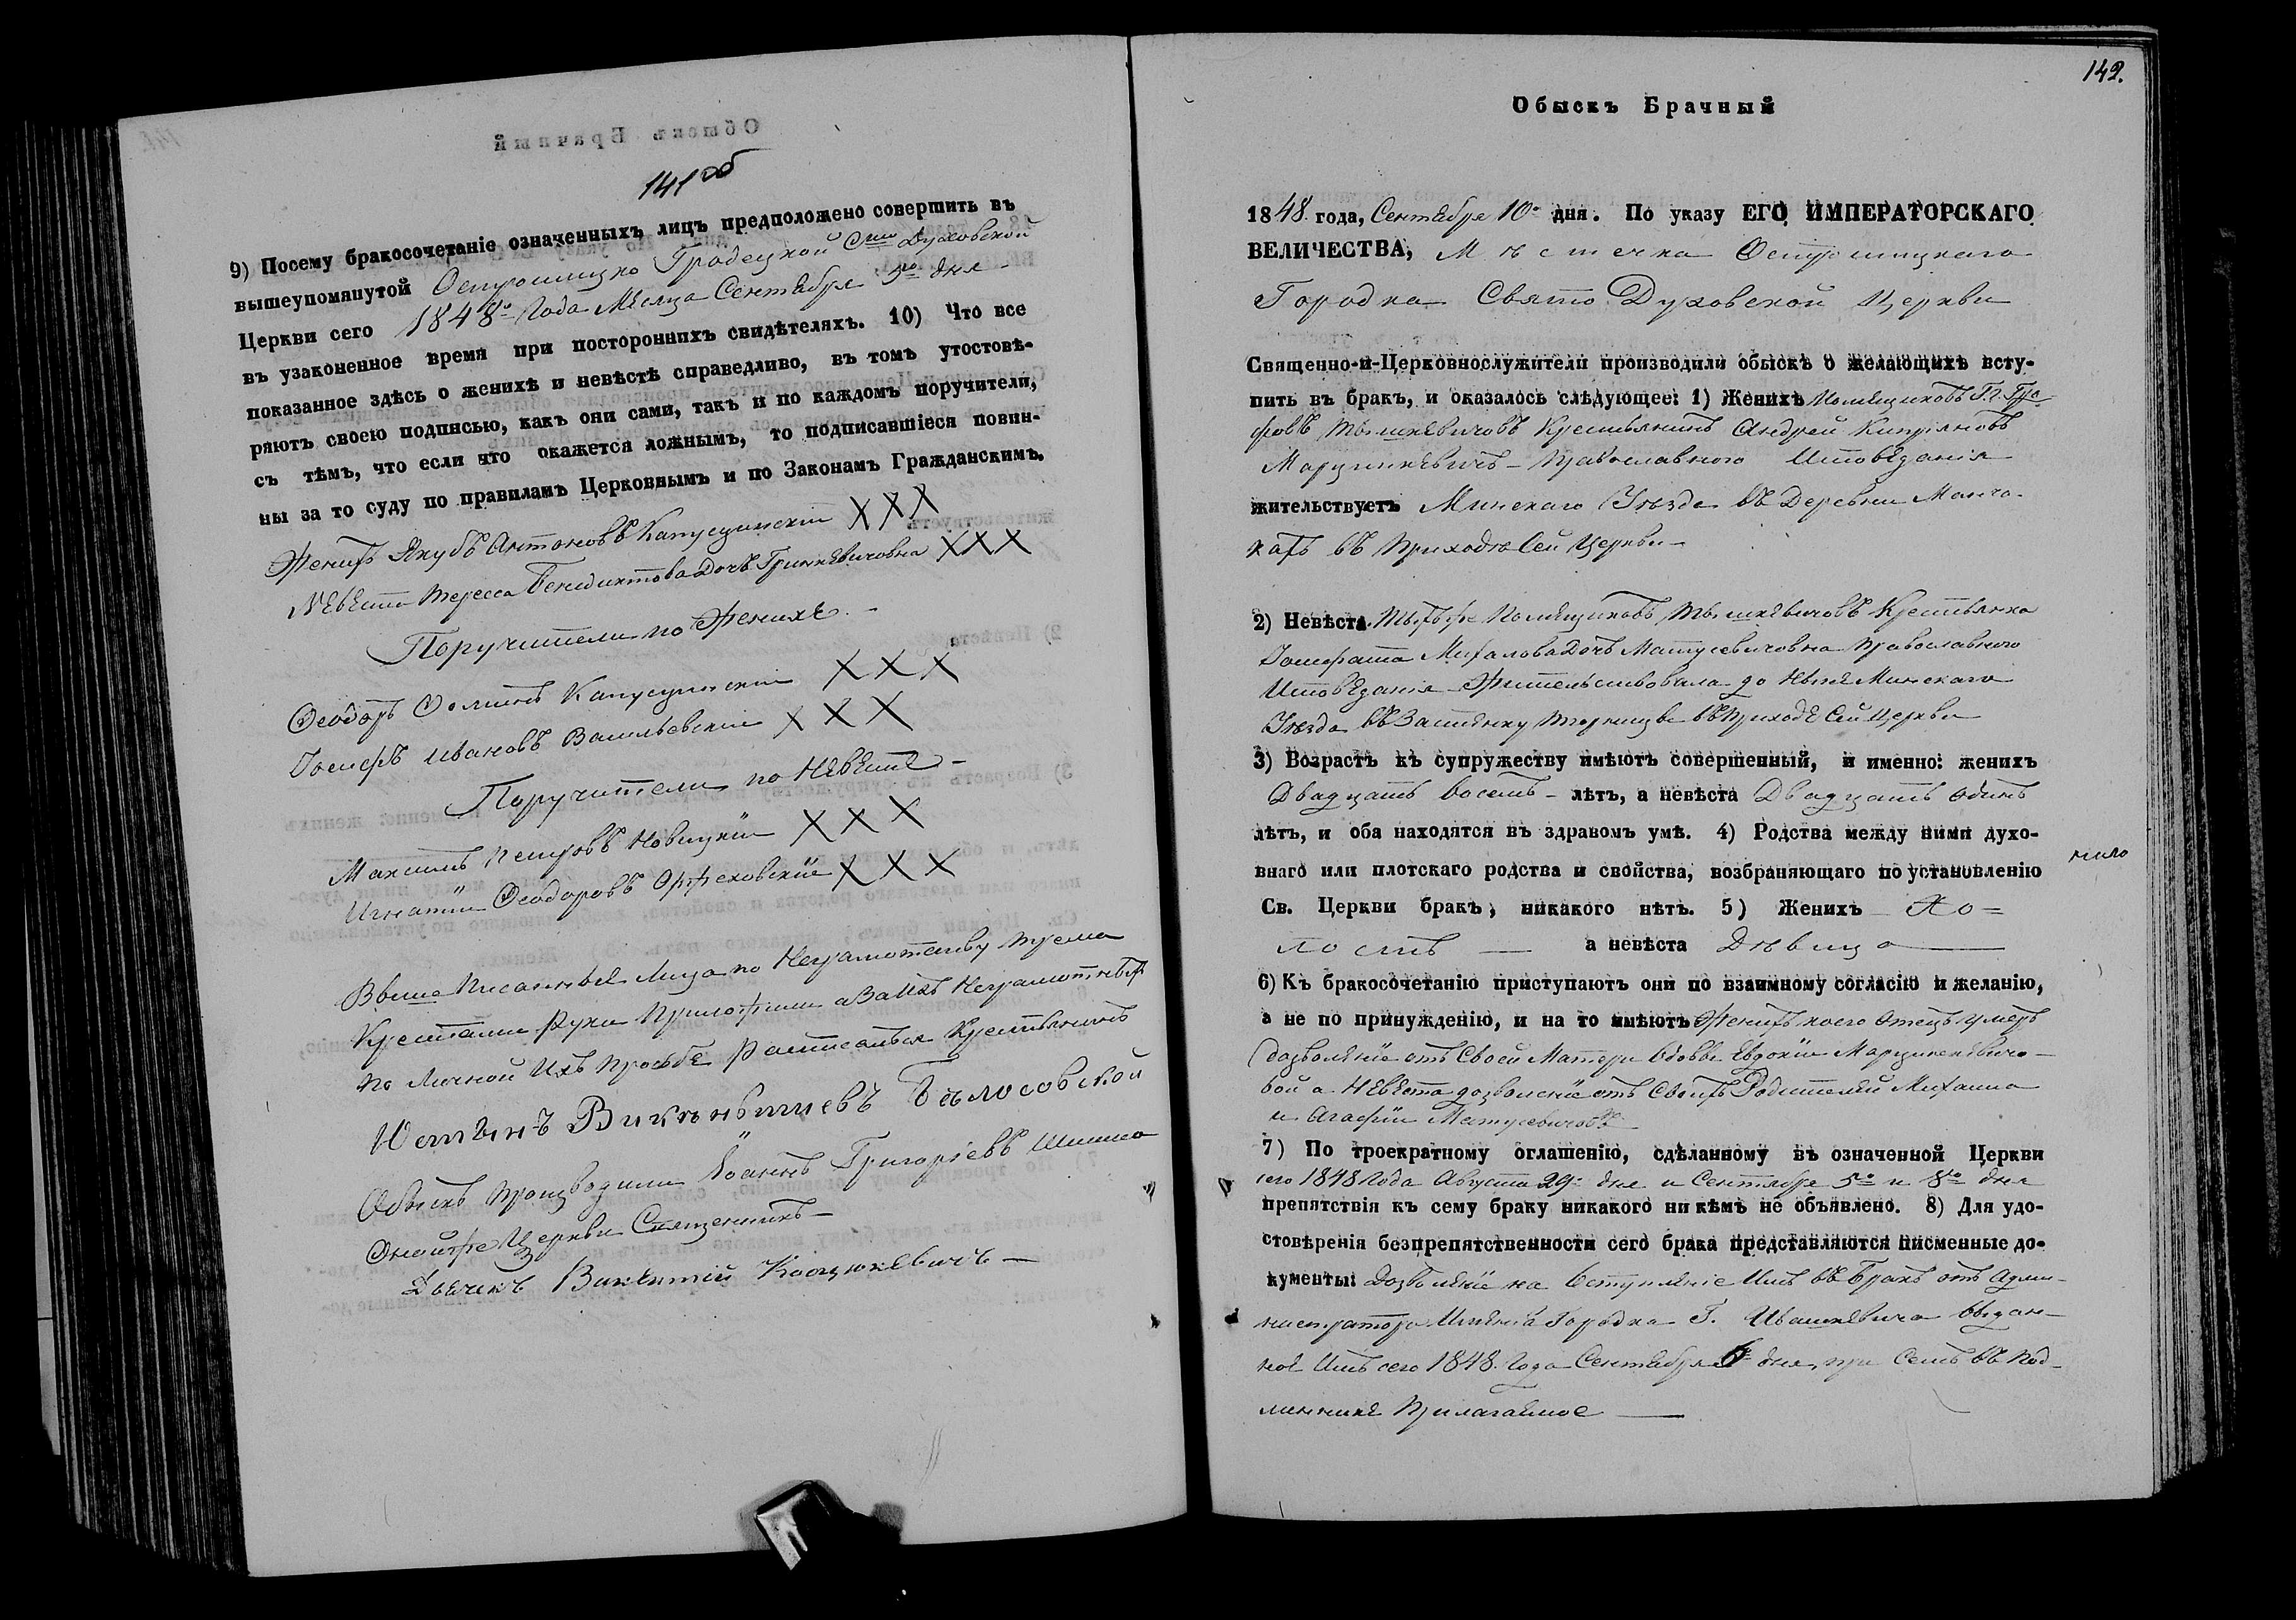 141 об
9) Посему бракосочетаніе означенныхъ лицъ предположено совершить въ
вышеупомянутой Острошицко Градецкой Сто Духовской
Церкви сего 1848го Года Месяца Сентебря 5го дня
въ узаконенное время при постороннихъ свидѣтеляхъ. 10) Что все
показанное здѣсь о женихѣ и невѣстѣ справедливо, въ томъ утостовѣ-
ряютъ своею подписью, какъ они сами, такъ и по каждомъ поручители,
съ тѣмъ, что если что окажется ложнымъ, то подписавшіеся повин-
ны за то суду по правиламъ Церковнымъ и по Законамъ Гражданскимъ.
Женихъ Якубъ Антоновъ Капусцинскіи ХХХ
Невеста Тересса Бенидиктова Дочь Гринкевичовна ХХХ
Поручители по Женихе
Феодоръ Фоминъ Капусцинскіи ХХХ
Іосифъ Ивановъ Васильевскіи ХХХ
Поручители по Невесте
Максимъ Петровъ Новицкіи ХХХ
Игнатіи Феодоровъ Оржеховскіи ХХХ
Выше Писанные Лица по Неграмотству трема
Крестами Руки Приложили а За Ихъ Неграмотныхъ
по Личной Ихъ Просьбе Росписался Крестьянинъ
Юстынъ Викѣнтыевъ Бѣлосовской
Обыскъ производили Іоаннъ Григоріевъ Шишко
Оной же Церкви Священникъ
Дьячекъ Викентій Коцюкевичъ
142.
Обыскъ Брачный
1848. года, Сентебря 10го дня. По указу ЕГО ИМПЕРАТОРСКАГО
ВЕЛИЧЕСТВА, Мѣстечка Острошицкаго
Городка Свято Духовской Церкви
Священно-и-Церковнослужители производили обыскъ о желающихъ всту-
пить въ бракъ, и оказалось слѣдующее: 1) Женихъ Помещиковъ Г. г. Гра-
фовъ Тышкевичовъ Крестьянинъ Андрей Кипріяновъ
Марцинкевичъ Православного Исповеданія
жительствуетъ Минскаго Уѣзда въ Деревни
въ Приходѣ Сей Церкви
2) Невѣста Тыхъ же Помещиковъ Тышкевичовъ Крестьянка
Іосифата Михалова Дочь Матусевичовна Православного
Исповеданія Жительствовала до Ныне Минскаго
Уѣзда въ Застенку въ Приходе Сей Церкви
3) Возрастъ къ супружеству имѣютъ совершенный, и именно: женихъ
Двадцать восемь лѣтъ, а невѣста Двадцать одинъ
лѣтъ, и оба находятся въ здравомъ умѣ. 4) Родства между ними духо-
внаго или плотскаго родства и свойства, возбраняющаго по установленію
Св. Церкви бракъ, никакого нѣтъ. 5) Женихъ Хо=
лостъ а невѣста Дѣвица
6) Къ бракосочетанію приступаютъ они по взаимному согласію и желанію,
а не по принужденію, и на то имѣютъ Женихъ коего Отецъ умеръ
дозволеніе отъ Своей Матери Вдовы Евдокіи Марцинкевичо-
вой а Невеста дозволеніе отъ Своихъ Родителей Михаила
и Агафіи Матусевичовъ
7) По троекратному оглашенію, сдѣланному въ означенной Церкви
сего 1848 Года Августа 29го дня и Сентебря 5го и 8го дня
препятствія къ сему браку никакого ни кѣмъ не объявлено. 8) Для удо-
стовѣренія безпрепятственности сего брака представляются писменные до-
кументы: Дозволеніе на Вступленіе Имъ въ Бракъ отъ Адми-
нистратора Именія Городка Г. Ивашкевича выдан-
ное Имъ сего 1848. Года Сентебря 6го дня, при Семъ въ Под-
линнике Прилагаемое